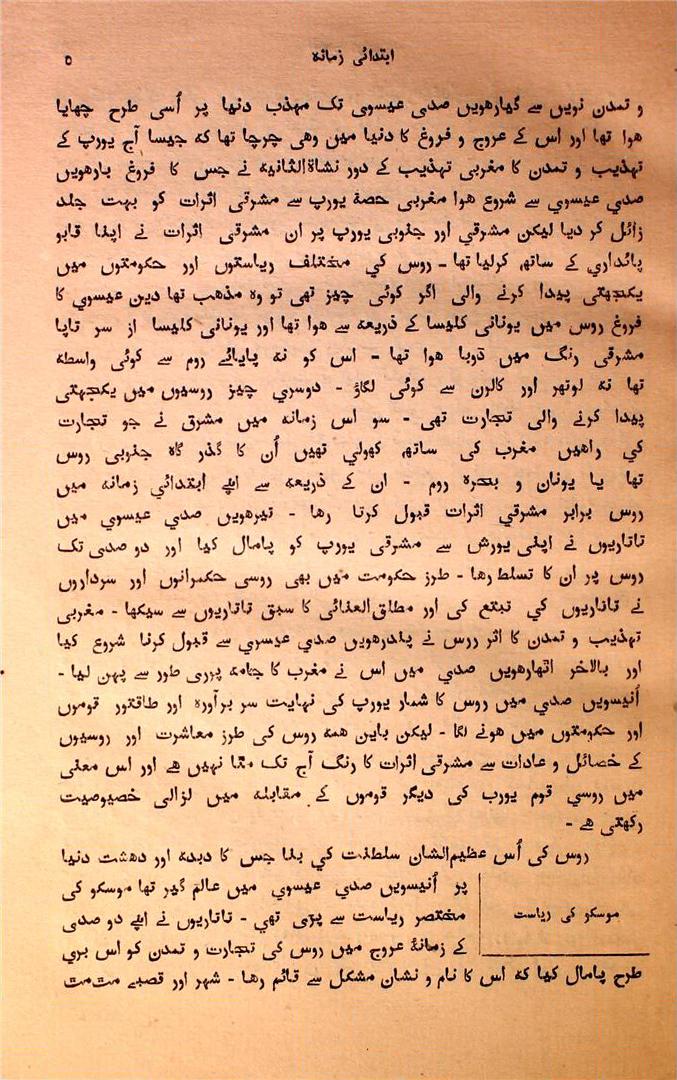 ابتدائی زمانہ ٥
و تمدن نویں سے گیارھویں صدی عیسوی تک مہذب دنیا پر اُسی طرح چھایا
ھوا تھا اور اس کے عروج و فروغ کا دنیا میں وھی چرچا تھا کہ جیسا آج یورپ کے
تہذیب و تمدن کا مغربی تہذیب کے دور نشاۃالثانیہ نے جس کا فروغ بارھویں
صدی عیسوی سے شروع ھوا مغربی حصۂ یورپ سے مشرقی اثرات کو بہت جلد
زائل کر دیا لیکن مشرقی اور جنوبی یورپ پر ان مشرقی اثرات نے اپنا قابو
پائداری کے ساتھ کرلیا تھا - روس کی مختلف ریاستوں اور حکومتوں میں
یکجہتی پیدا کرنے والی اگر کوئی چیز تھی تو وہ مذھب تھا دین عیسوی کا
فروغ روس میں یونانی کلیسا کے ذریعہ سے ھوا تھا اور یونانی کلیسا از سر تاپا
مشرقی رنگ میں ڈوبا ھوا تھا - اس کو نہ پاپائے روم سے کوئی واسطہ
تھا نہ لوتھر اور کالون سے کوئی لگاؤ - دوسری چیز روسیوں میں یکجہتی
پیدا کرنے والی تجارت تھی - سو اس زمانہ میں مشرق نے جو تجارت
کی راھیں مغرب کی ساتھ کھولی تھیں اُن کا گذر گاہ جنوبی روس
تھا یا یونان و بحرۂ روم - ان کے ذریعہ سے اپنے ابتدائی زمانہ میں
روس برابر مشرقی اثرات قبول کرتا رھا - تیرھویں صدی عیسوی میں
تاتاریوں نے اپنی یورش سے مشرقی یورپ کو پامال کیا اور دو صدی تک
روس پر ان کا تسلط رھا - طرز حکومت میں بھی روسی حکمرانوں اور سرداروں
نے تاتاریوں کی تبتع کی اور مطلق‌العنائی کا سبق تاتاریوں سے سیکھا - مغربی
تہذیب و تمدن کا اثر روس نے پندرھویں صدی عیسوی سے قبول کرنا شروع کیا
اور بالاخر اتھارھویں صدی میں اس نے مغرب کا جامہ پوری طور سے پہن لیا -
اُنیسویں صدی میں روس کا شمار یورپ کی نہایت سر برآورہ اور طاقتور قوموں
اور حکومتوں میں ھونے لگا - لیکن باین ھمہ روس کی طرز معاشرت اور روسیوں
کے خصائل و عادات سے مشرقی اثرات کا رنگ آج تک مٹا نہیں ھے اور اس معنی
میں روسی قوم یورپ کی دیگر قوموں کے مقابلہ میں نرالی خصیوصیت
رکھتی ھے -
روس کی اُس عظیم‌الشان سلطنت کی بنا جس کا دبدبہ اور دھشت دنیا
پر اُنیسویں صدی عیسوی میں عالم گیر تھا موسکو کی
موسکو کی ریاست
مختصر ریاست سے پڑی تھی - تاتاریوں نے اپنے دو صدی
کے زمانۂ عروج میں روس کی تجارت و تمدن کو اس بری
طرح پامال کیا کہ اس کا نام و نشان مشکل سے قائم رھا - شہر اور قصبے مت‌مت